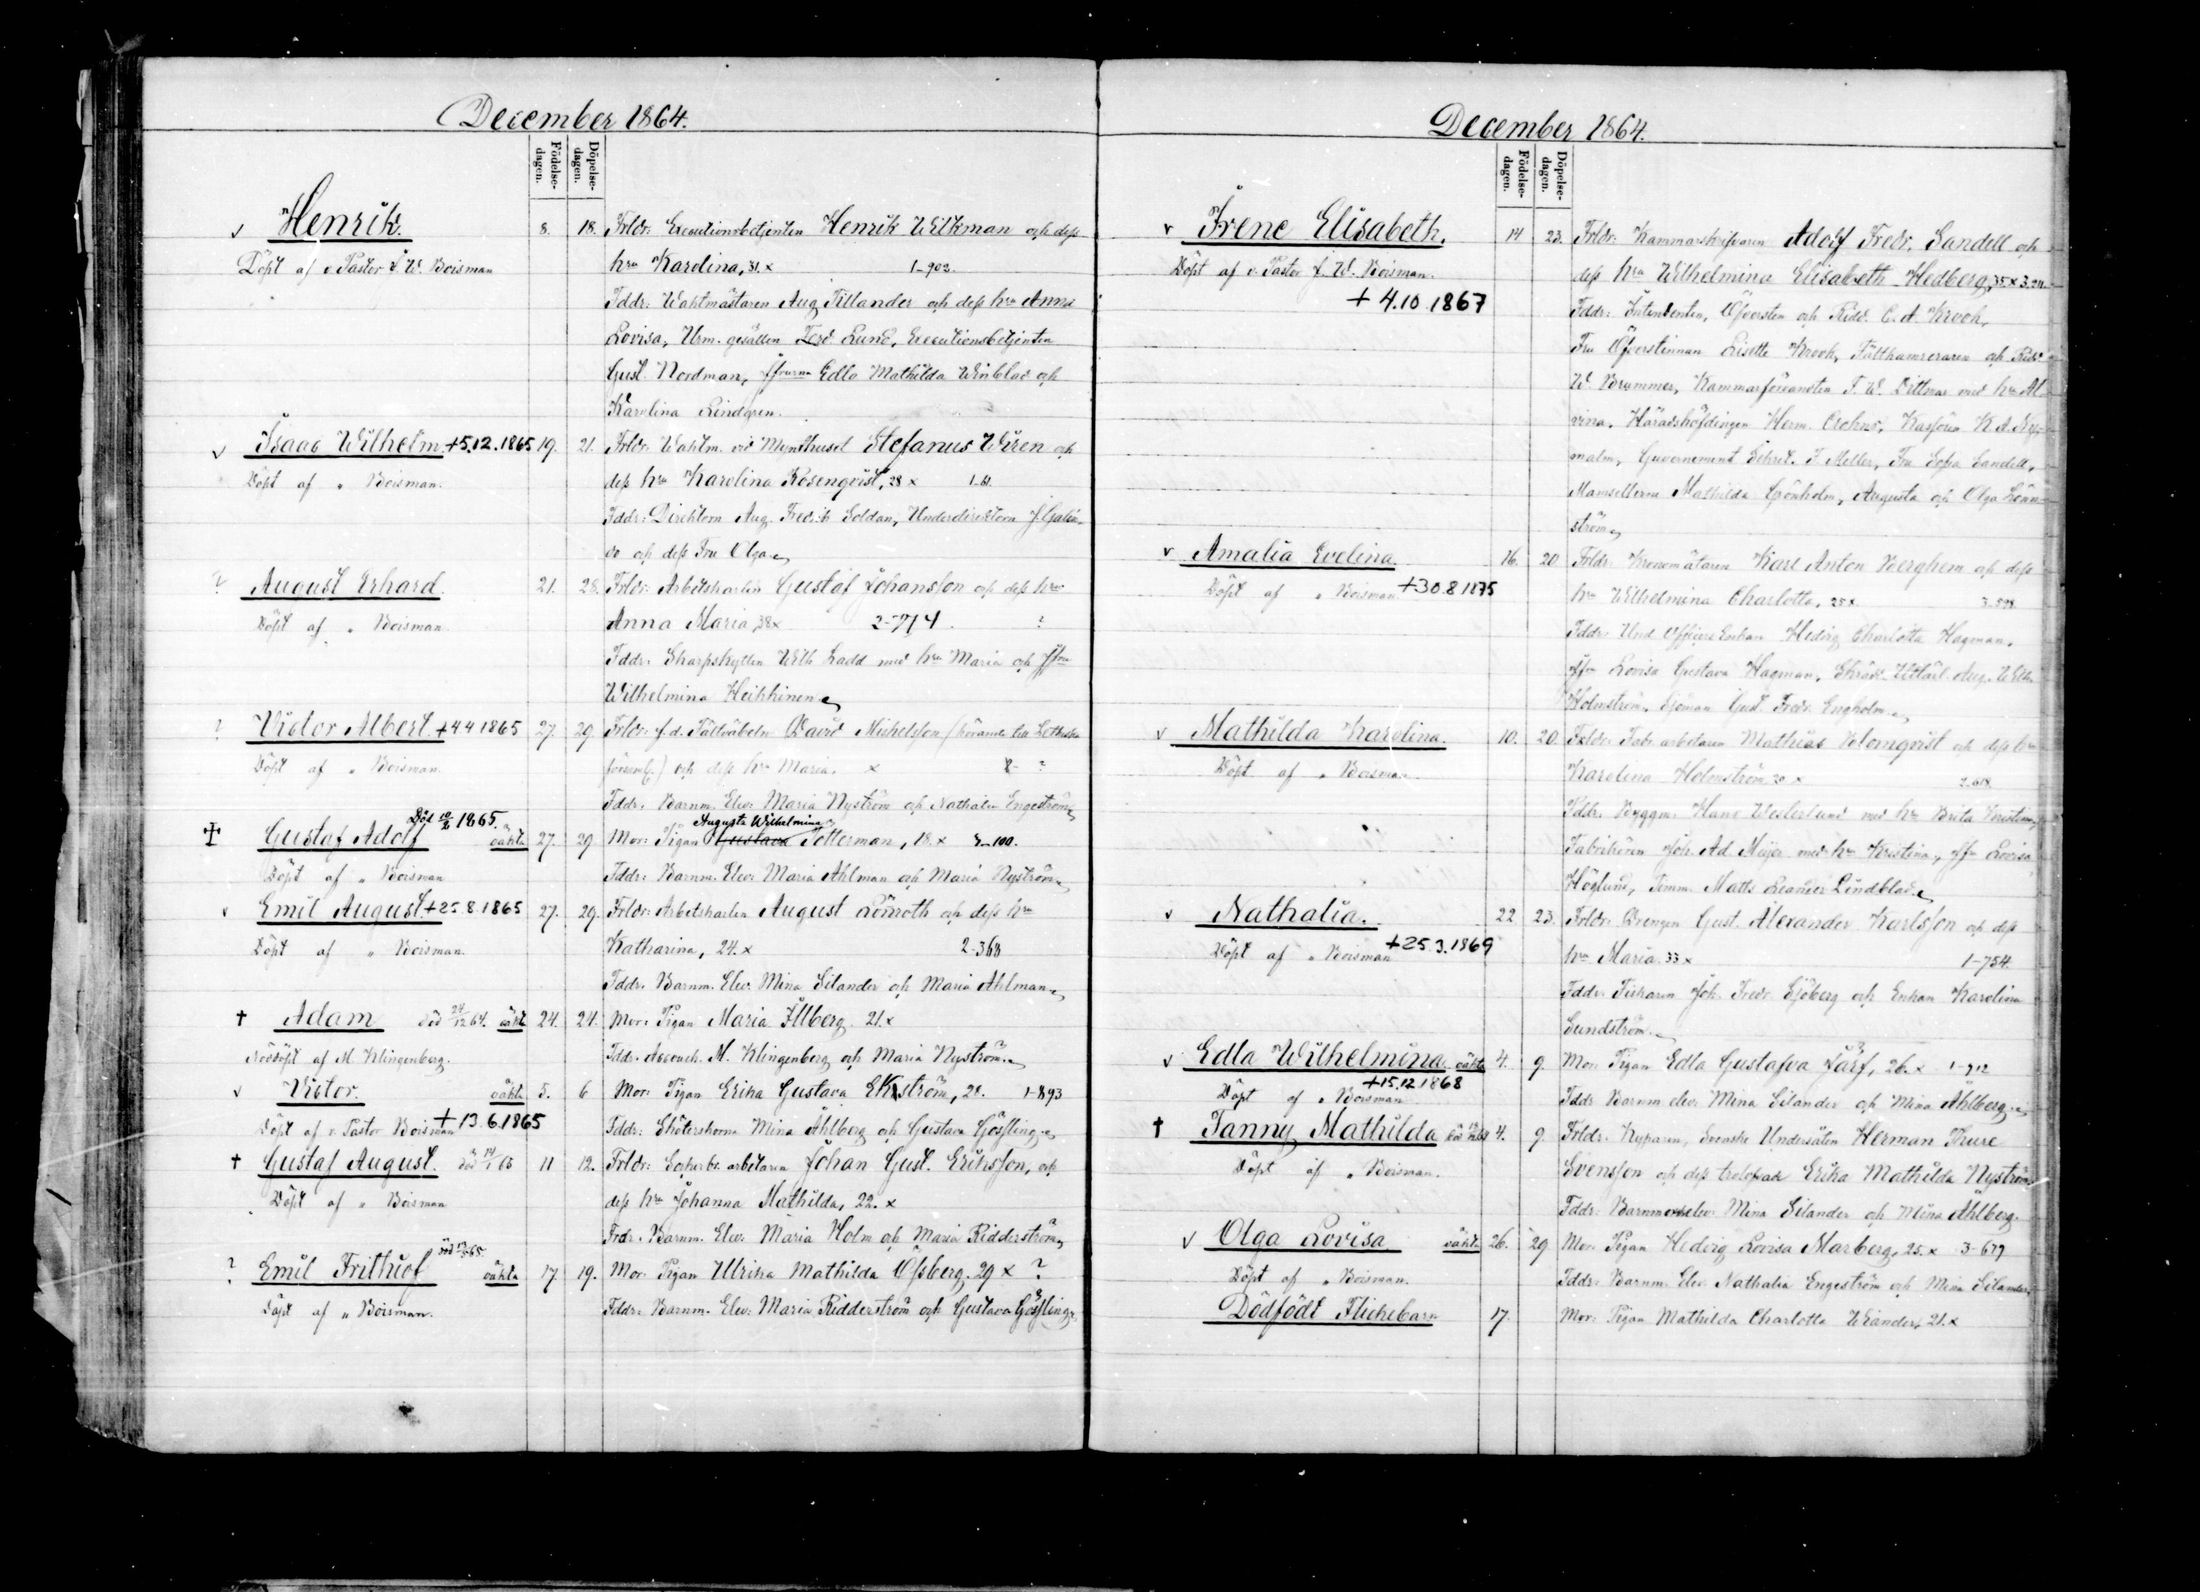 December 1864.
Födelse-dagen. Döpelse-dagen.
v Henrik. 8. 18. Frldr: Executionsbetjenten Henrik Wilkman och dess
Döpt af v. Pastor F. W. Boisman hru Karolina, 31. x 1-902.
Fddr: Wahtmästaren Aug. Tillander och dess hru Anna
Lovisa, Urm. gesällen Lund, Executionsbetjenten
Gust. Nordman, Jfrurna Edla Mathilda Winblad och
Karolina Lindgren.
v Isaac Wilhelm +5.12.1865 19. 21. Frldr: Wahtm. vid Mynthuset Stefanus Wiren och
Döpt af " Boisman. dess hru Karolina Rosenqvist, 28 x 1-61.
Fddr: Direktorn Aug. Fredrik Soldan, Underdirektorn
och dess Fru Olga
? August Erhard. 21. 28. Frldr: Arbetskarlen Gustaf Johansson och dess hru
Döpt af " Boisman. Anna Maria, 38x 2-714. ?
Fddr: Skarpskytten Wilh. Ladd med hru Maria och Jfru
Wilhelmina Heikkinen
? Victor Albert +4.4 1865 27. 29 Frldr: f.d. Fältväbeln David Mickelsson (hörande till Lethala
Döpt af " Boisman. församl.) och dess hru Maria. x ?
Fddr. Barnm. Elev: Maria Nyström och Nathalia Engeström
Död 10/2 1865. Augusta Wilhelmina
Gustaf Adolf oäkta 27. 29 Mor: Pigan Gustava Totterman, 18. x 4-100.
Döpt af " Boisman Fddr: Barnm. Elev: Maria Ahlman och Maria Nyström
v Emil August +25.8.1865 27. 29. Frldr: Arbetskarlen August Lönroth och dess hru
Döpt af " Boisman. Katharina, 24. x 2-368
Fddr. Barnm. Elev: Mina Silander och Maria Ahlman
† Adam död 24/12 64. oäkta 24. 24. Mor: Pigan Maria Illberg 21. x
Nöddöpt af M. Klingenberg. Fddr. Accouch. M. Klingenberg och Maria Nyström
v Victor. oäkta 5. 6 Mor: Pigan Erika Gustava Ekström, 28. 1-893
Döpt af v. Pastor Boisman +13.6.1865 Fddr: Sköterskorna Mina Åhlberg och Gustava Gössling
† Gustaf August. död 14/1 65 11 12. Frldr: arbetaren Johan Gust. Eriksson, och
Döpt af " Boisman dess hru Johanna Mathilda, 22. x
Fddr. Barnm. Elev: Maria Holm och Maria Ridderström
? Emil Frithiof oäkta 17. 19. Mor: Pigan Ulrika Mathilda Öfsberg, 29 x ?
Döpt af " Boisman. Fddr: Barnm. Elev: Maria Ridderström och Gustava Gössling
December 1864.
Födelse-dagen. Döpelse-dagen.
v Irene Elisabeth. 14 23. Frldr: Kammarskrifvaren Adolf Fredr. Sandell och
Döpt af v. Pastor F. W. Boisman. dess hru Wilhelmina Elisabeth Hedberg, 35 x 3.
+ 4.10.1867 Fddr: Intendenten, Öfversten och Ridd. C. A. Krook,
Fru Öfverstinnan Lisette Krook, Fältkamreraren och Ridd
W. Brummer, Kammarförvandten F. W. Dittmar med hru Al-
vina, Häradshöfdingen Herm. Crohns, Kassören K. A.
malm, Guvernement Sekret. F. Meller, Fru Sofia Sandell,
Mamsellerna Mathilda Grönholm, Augusta och Olga Lönn-
ström
v Amalia Evelina 16. 20 Frldr: Kronomätaren Karl Anton Berghem och dess
Döpt af " Boisman +30.8 1875 hru Wilhelmina Charlotta, 25x 3.598
Fddr: Und. Officers Enkan Hedvig Charlotta Hagman,
Jfru Lovisa Gustava Hagman, Skrädd. Aug. Wilh.
Holmström, Sjöman Gust. Fredr. Engholm
v Mathilda Karolina. 10. 20. Frldr: Fabr. arbetaren Mathias Blomqvist och dess hru
Döpt af " Boisman Karolina Holmström 30 x 2.618
Fddr. Byggm. Hans Westerlund med hru Brita Kristina,
Fabrikören Joh. Ad. Meijer med hru Kristina, Jfru Lovisa
Höglund, Timm. Matts Leander Lindblad
v Nathalia. 22 23. Frldr: Drengen Gust. Alexander Karlsson och dess
Döpt af " Boisman +25.3.1869 hru Maria. 33 x 1-754.
Fddr: Fiskaren Joh. Fredr. Sjöberg och Enkan Karolina
Sundström
v Edla Wilhelmina oäkta 4. 9. Mor: Pigan Edla Gustafva Färf, 26. x 1-912
+15.12 1868
Döpt af " Boisman Fddr Barnm elev: Mina Silander och Mina Åhlberg
† Fanny Mathilda 4. 9 Frldr: Kyparen, Svenske Undersåten Herman Thure
Döpt af " Boisman. Svensson och dess trolofvade Erika Mathilda Nyström
Fddr: Barnm elev: Mina Silander och Mina Åhlberg.
v Olga Lovisa oäkta 26. 29 Mor: Pigan Hedvig Lovisa Marberg, 25. x 3-679
Döpt af " Boisman. Fddr: Barnm. Elev Nathalia Engeström och Mina Silander
Dödfödt Flickebarn 17. Mor: Pigan Mathilda Charlotta Wiander, 21. x